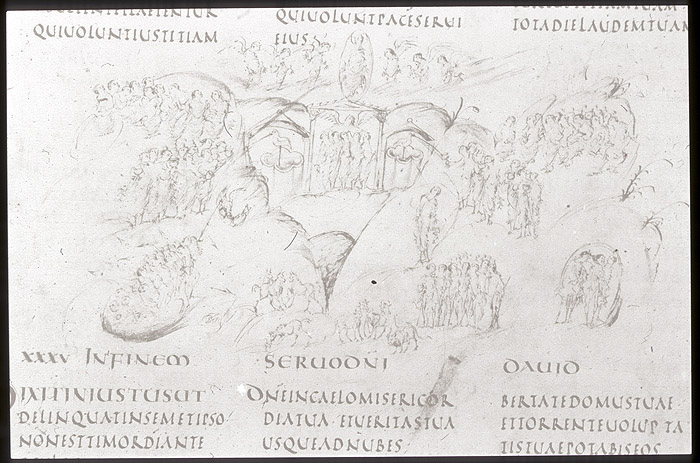 QUIUOLUNTIUSTITIAM
QUIUOLUNTPACESERUI
EIUS
TOTADIELAUDEMTUAM
XXXV INFINEM SERUODNI DAUID
DIXITINIUSTUSUT
DELINQUATINSEMETIPSO
NONESTTIMORDIANTE
DNEINCAELOMISERICOR
DIATUA· ETUERITASTUA
USQUEADNUBES
BERTATEDOMUSTUAE·
ETTORRENTEUOLUPTA
TISTUAEPOTABISEOS